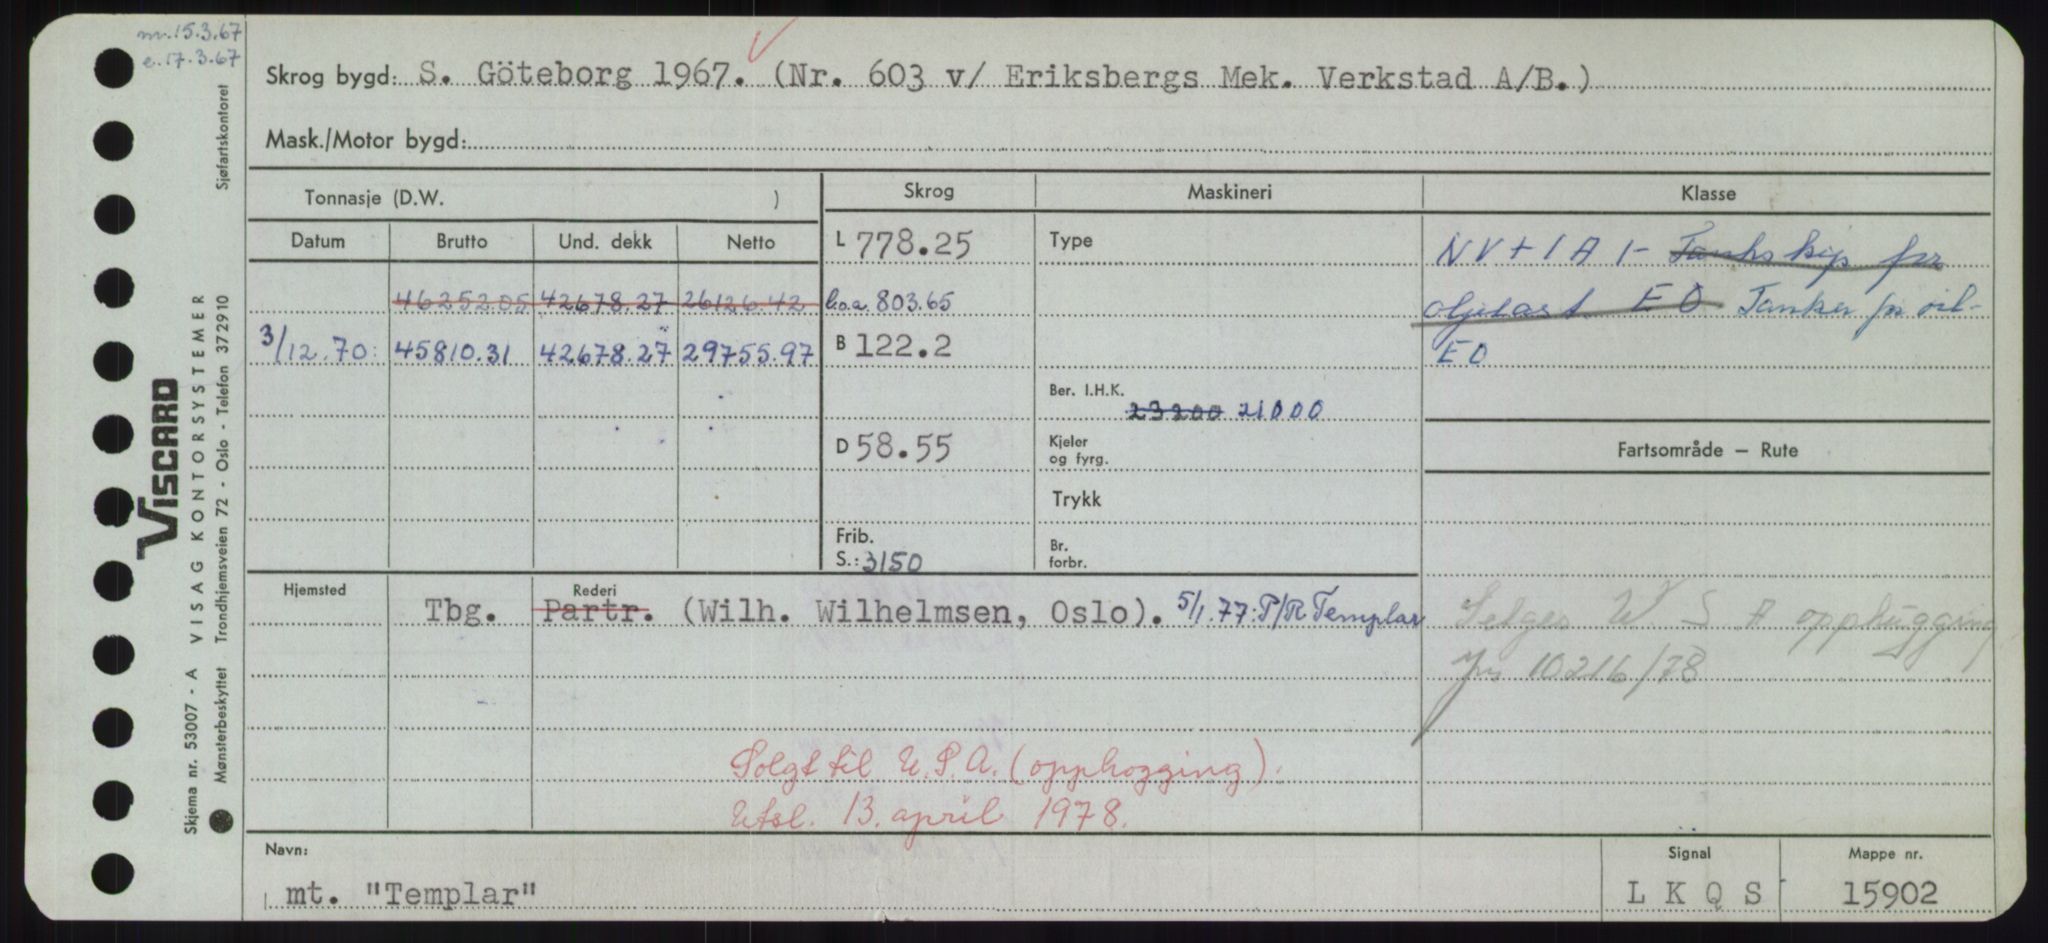 nv. 15.3.67
e. 17.3.67
Skrog bygd: S. Göteborg 1967. (Nr. 603 v/ Eriksbergs Mek. Verkstad A/B.)
Mask./Motor bygd:
Tonnasje (D.W. )
Skrog
Maskineri
Klasse
Datum Brutto Und. dekk Netto
L 778.25
Type
NV + 1 A 1 - Tankskip for
46252.05 42678.27 26126.42
l.o.a. 803.65
oljelast EO Tanker for oil-
3/12.70: 45810.31 42678.27 29755.97
B 122.2
EO
Ber. I.H.K. 23200 21000
D 58.55
Kjeler
og fyrg.
Fartsområde – Rute
Trykk
Frib.
S.: 3150
Br.
forbr.
Hjemsted Rederi
Tbg. Partr. (Wilh. Wilhelmsen, Oslo). 5/1.77: P/R Templar
Selges U S A opphugging
10216/78
Solgt til U.S.A. (opphogging).
Utsl. 13. april 1978.
Navn:
mt. "Templar"
Signal
L K Q S
Mappe nr.
15902
VISCARD
Skjema nr. 53007 - A VISAG KONTORSYSTEMER
Mønsterbeskyttet Trondhjemsveien 72 - Oslo - Telefon 372910 Sjøfartskontoret